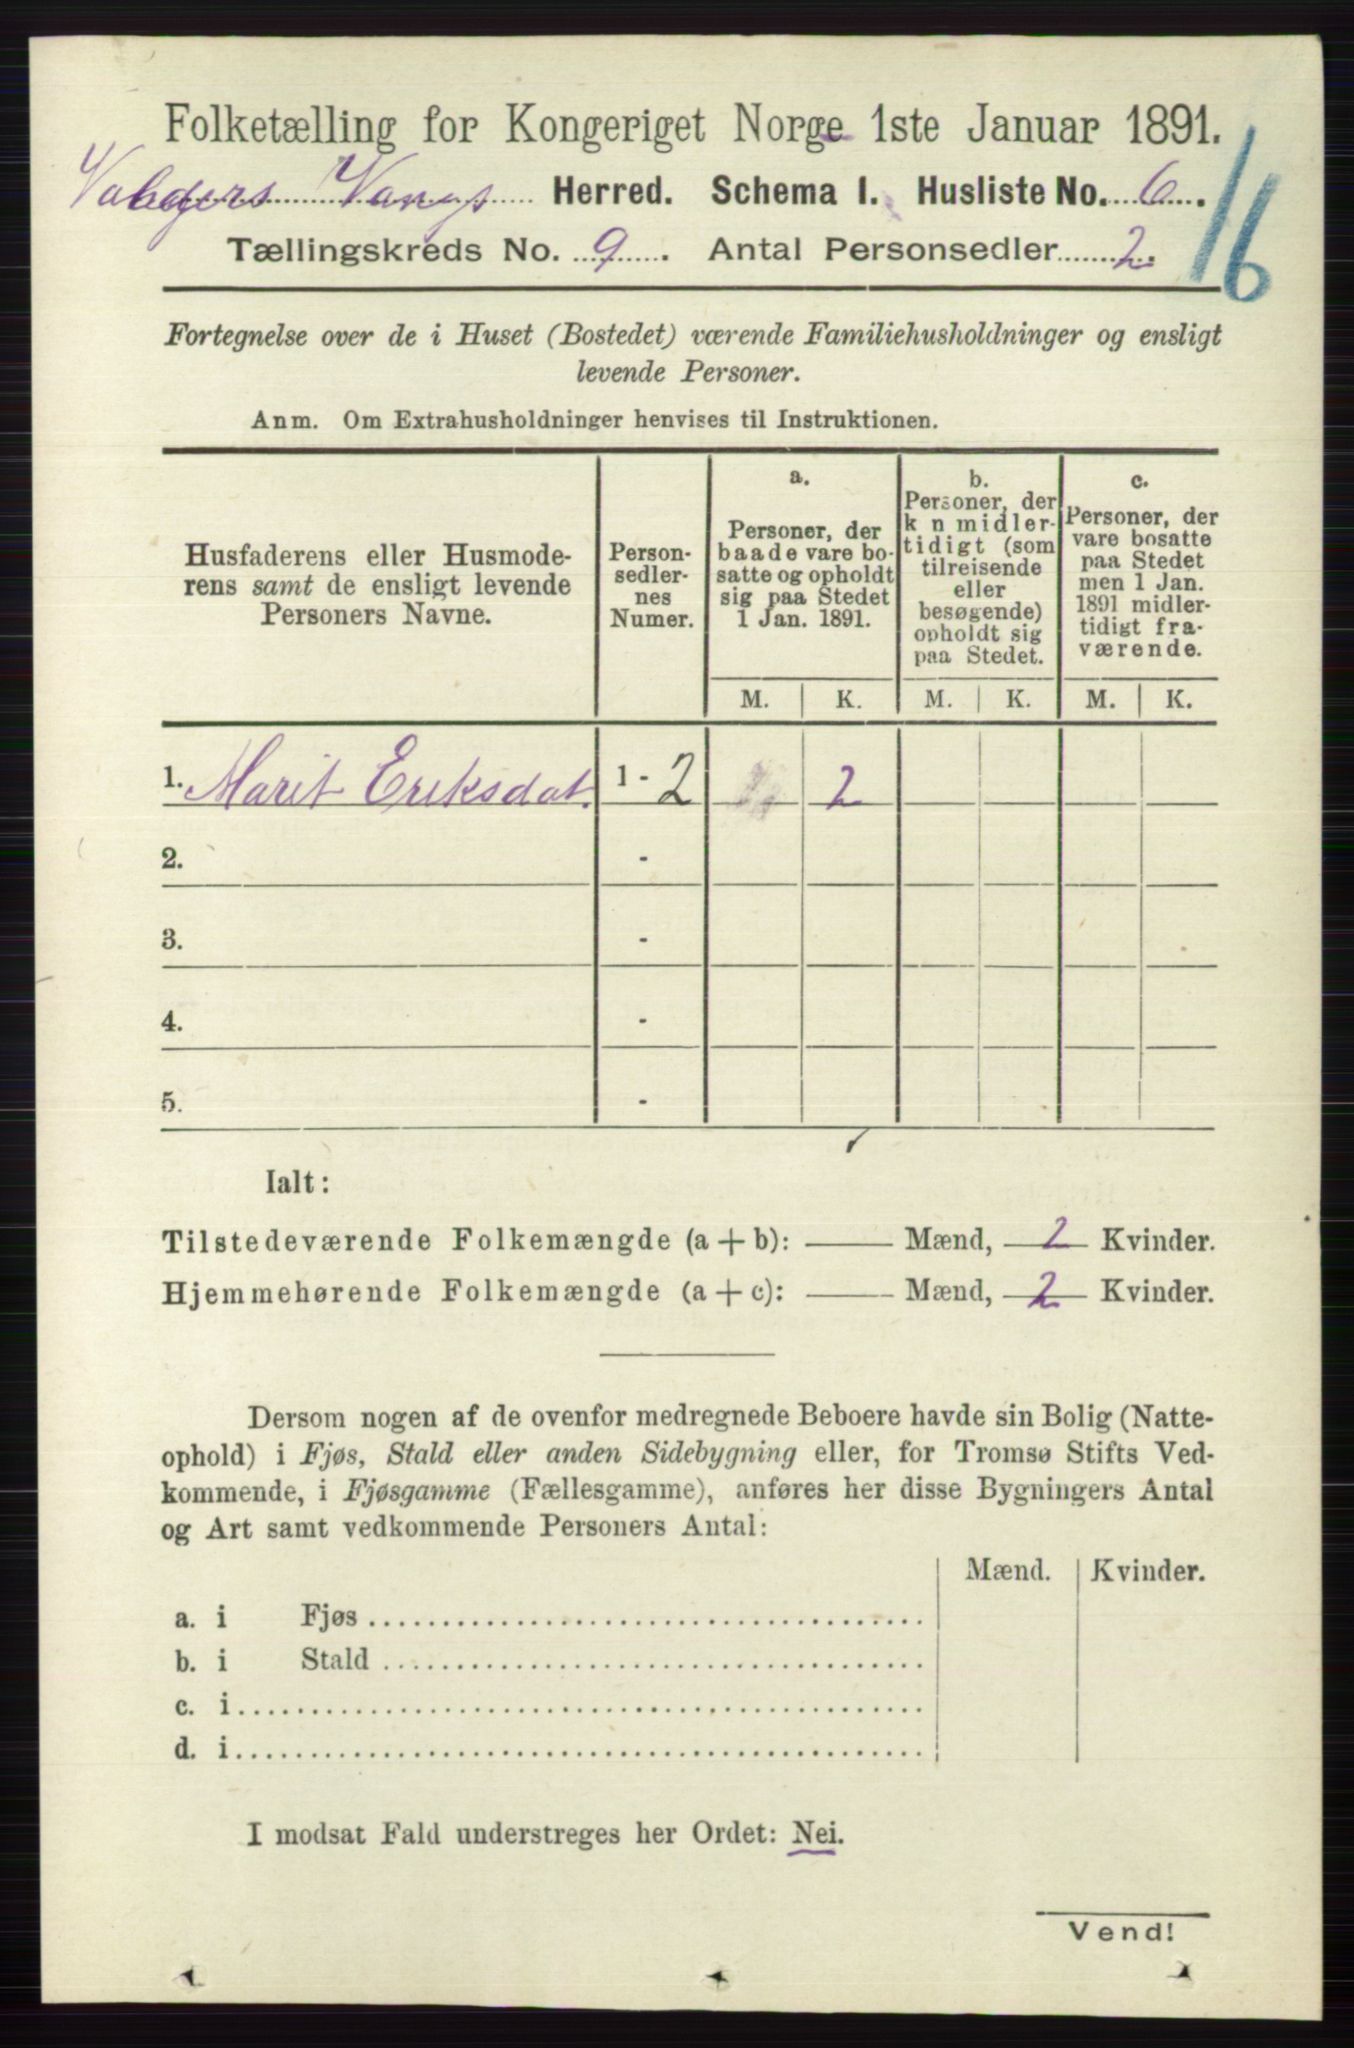 Folketælling for Kongeriget Norge 1ste Januar 1891.
Vangs Herred. Schema I. Husliste No. 6.
16
Tællingskreds No. 9. Antal Personsedler 2.
Fortegnelse over de i Huset (Bostedet) værende Familiehusholdninger og ensligt
levende Personer.
Anm. Om Extrahusholdninger henvises til Instruktionen.
Husfaderens eller Husmode-
rens samt de ensligt levende
Personers Navne.
Person-
sedler-
nes
Numer.
a.
Personer, der
baade vare bo-
satte og opholdt
sig paa Stedet
1 Jan. 1891.
b.
Personer, der
k n midler-
tidigt (som
tilreisende
eller
besøgende)
opholdt sig
paa Stedet.
c.
Personer, der
vare bosatte
paa Stedet
men 1 Jan.
1891 midler-
tidigt fra-
værende.
M. K. M. K. M. K.
1. Marit Eriksdat. 1 - 2 2
2. -
3. -
4. -
5. -
Ialt:
Tilstedeværende Folkemængde (a + b): —— Mænd, 2 Kvinder.
Hjemmehørende Folkemængde (a + c): —— Mænd, 2 Kvinder.
Dersom nogen af de ovenfor medregnede Beboere havde sin Bolig (Natte-
ophold) i Fjøs, Stald eller anden Sidebygning eller, for Tromsø Stifts Ved-
kommende, i Fjøsgamme (Fællesgamme), anføres her disse Bygningers Antal
og Art samt vedkommende Personers Antal:
Mænd. Kvinder.
a. i Fjøs
b. i Stald
c. i
d. i
I modsat Fald understreges her Ordet: Nei.
Vend!